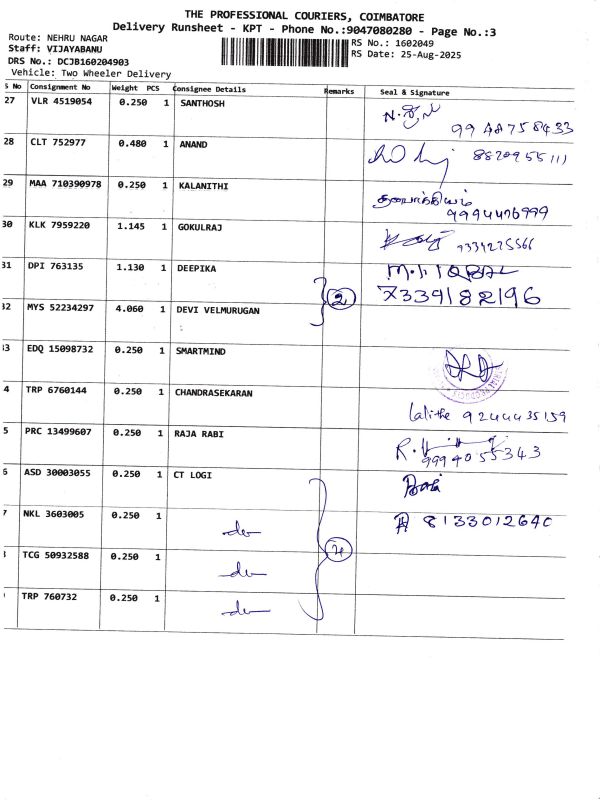 THE PROFESSIONAL COURIERS, COIMBATORE
Delivery Runsheet - KPT - Phone No.:9047080280 - Page No.:3
Route: NEHRU NAGAR
RS No.: 1602049
Staff: VIJAYABANU
RS Date: 25-Aug-2025
DRS No.: DCJB160204903
Vehicle: Two Wheeler Delivery
S No Consignment No Weight PCS Consignee Details Remarks Seal & Signature
27 VLR 4519054 0.250 1 SANTHOSH
99 48758433
28 CLT 752977 0.480 1 ANAND
8820955111
29 MAA 710390978 0.250 1 KALANITHI
9994476999
30 KLK 7959220 1.145 1 GOKULRAJ
9334275566
31 DPI 763135 1.130 1 DEEPIKA M.I IQBAL
2 7339182196
32 MYS 52234297 4.060 1 DEVI VELMURUGAN
33 EDQ 15098732 0.250 1 SMARTMIND
4 TRP 6760144 0.250 1 CHANDRASEKARAN
Lalithe 9244435159
5 PRC 13499607 0.250 1 RAJA RABI
9994055343
6 ASD 30003055 0.250 1 CT LOGI
7 NKL 3603005 0.250 1 8133012640
do
TCG 50932588 0.250 1
do
TRP 760732 0.250 1
do